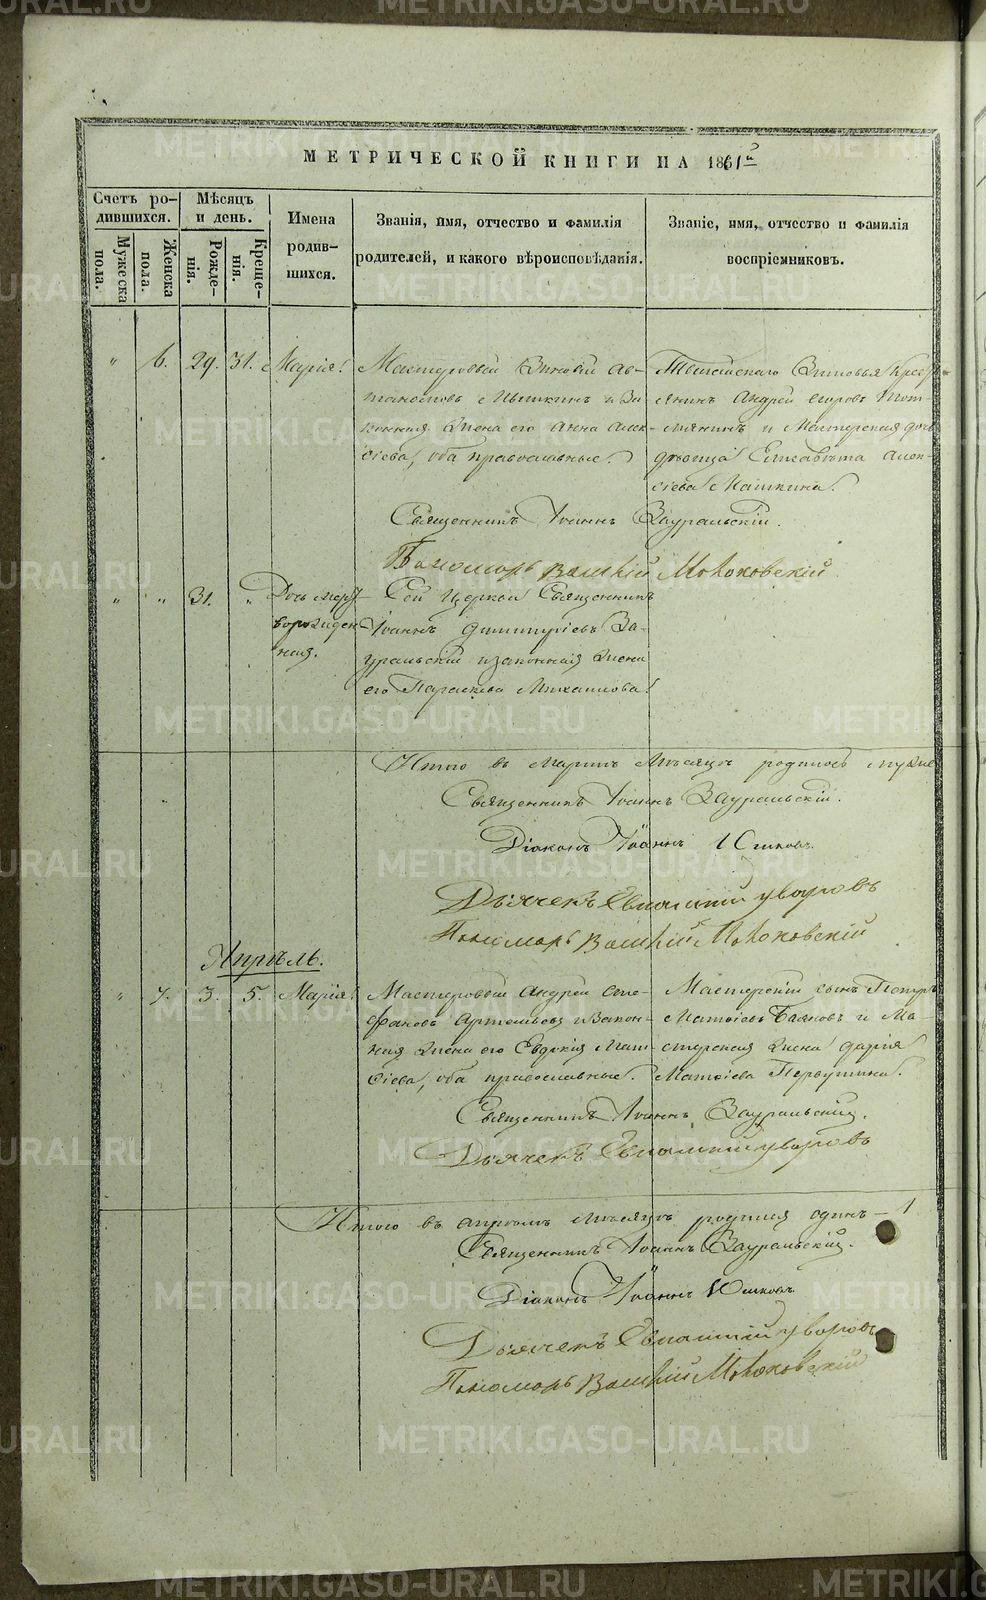 МЕТРИЧЕСКОЙ КНИГИ НА 1861й
Счетъ ро-
дившихся.
Мужеска
пола.
Женска
пола.
Мѣсяцъ
и день.
Рожде-
нія.
Креще-
нія.
Имена
родив-
шихся.
Званія, имя, отчество и фамилія
родителей, и какого вѣроисповѣданія.
Званіе, имя, отчество и фамилія
воспріемниковъ.
" 6. 29. 31. Марія.
Мастеровой Зиновій Ав-
и За-
конная жена его Анна Алек-
сіева, оба православные.
Крес-
янинъ Андрей Егоровъ
и Мастерская доч
дѣвица Елисавета Алек-
сіева Машкина.
Священникъ Іоаннъ Зауральскій.
Пономарь Василій
" " 31. "
Дочь мерт-
ворожден-
ная.
Сей Церкви Священникъ
Іоаннъ Димитріевъ За-
уральскій и законная жена
его Параскева Михаилова.
Итого въ Мартѣ Мѣсяцѣ родилось
Священникъ Іоаннъ Зауральскій.
Діаконъ Іоаннъ Юшковъ.
Дьячекъ Уваровъ
Пономарь Василій
Апрѣль.
" 7. 3. 5. Марія.
Мастеровой Андрей Сте-
фановъ Артемьевъ и Закон-
ная жена его Евдокія Мат-
ѳіева, оба православные.
Мастерскій сынъ Петръ
Матѳіевъ Баяновъ и Ма-
стерская жена Дарія
Матѳіева Первушина.
Священникъ Іоаннъ Зауральскій.
Дьячекъ Уваровъ
Итого въ Апрѣлѣ Мѣсяцѣ родился одинъ — 1
Священникъ Іоаннъ Зауральскій.
Діаконъ Іоаннъ Юшковъ
Дьячекъ Уваровъ
Пономарь Василій
METRIKI.GASO-URAL.RU